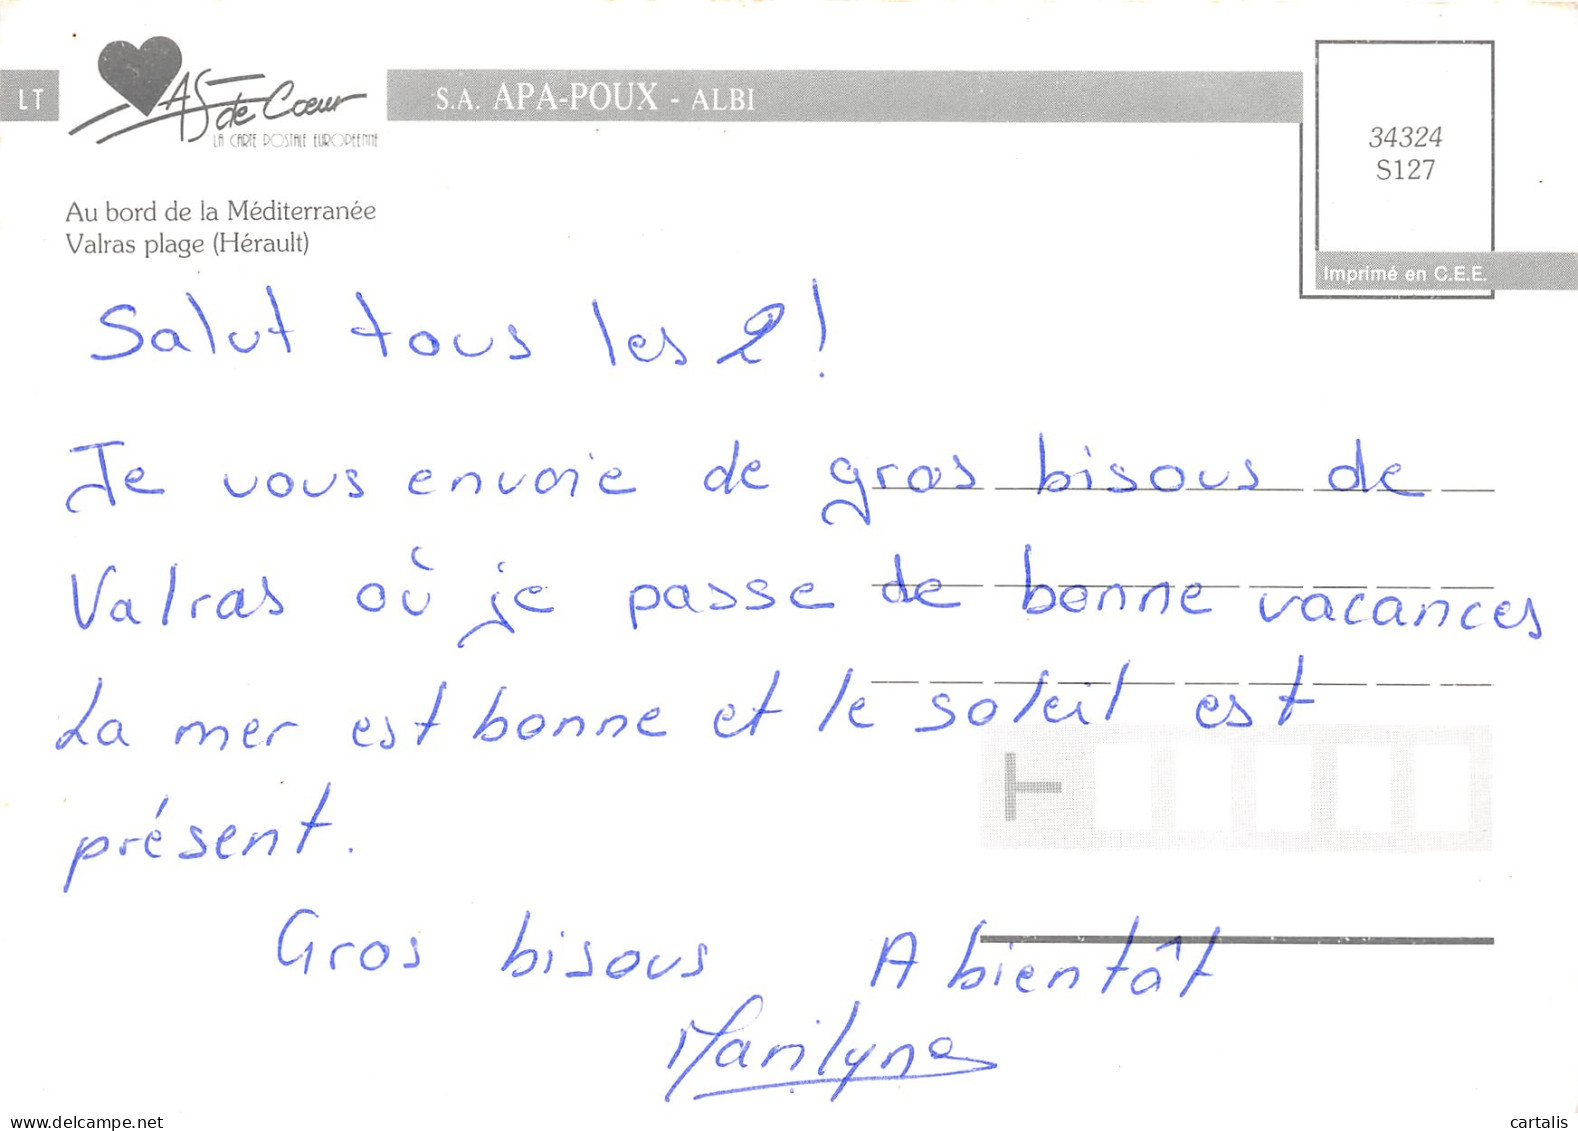 LT
AS de Cœur
LA CARTE POSTALE EUROPEENNE
S.A. APA-POUX - ALBI
34324
S127
Au bord de la Méditerranée
Valras plage (Hérault)
Imprimé en C.E.E.
Salut tous les 2 !
Je vous envoie de gros bisous de
Valras où je passe de bonne vacances
La mer est bonne et le soleil est
présent.
Gros bisous A bientôt
Marilyne
www.delcampe.net
cartalis